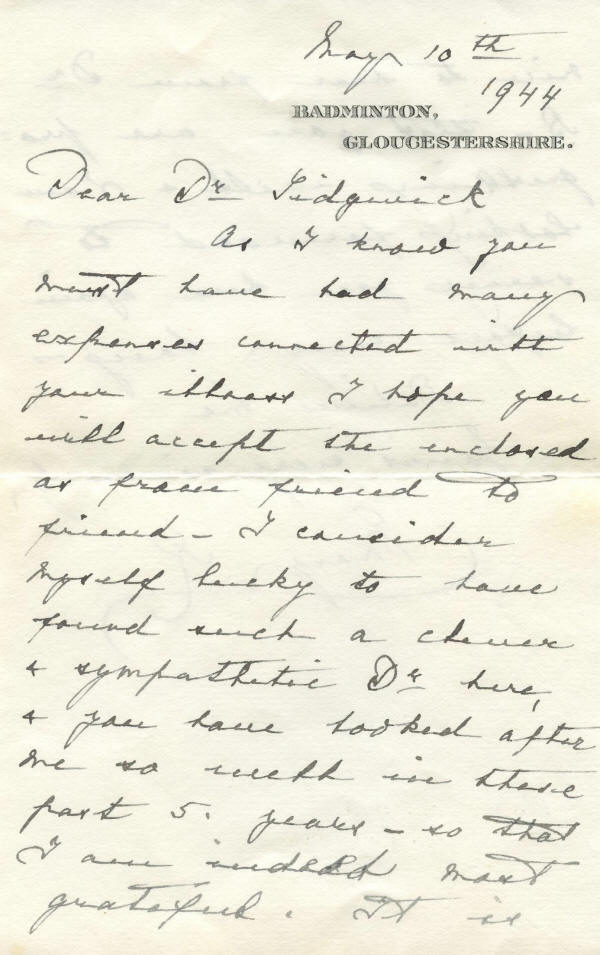 May 10th
1944
BADMINTON,
GLOUCESTERSHIRE.
Dear Dr Sidgwick
As I know you
must have had many
expenses connected with
your illness I hope you
will accept the enclosed
as from friend to
friend - I consider
myself lucky to have
found such a clever
& sympathetic Dr here,
& you have looked after
me so well in these
past 5. years - so that
I am indeed most
grateful. It is